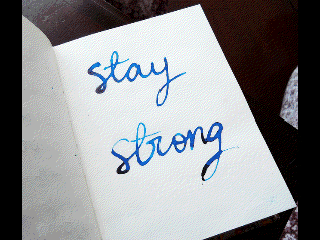 stay
strong